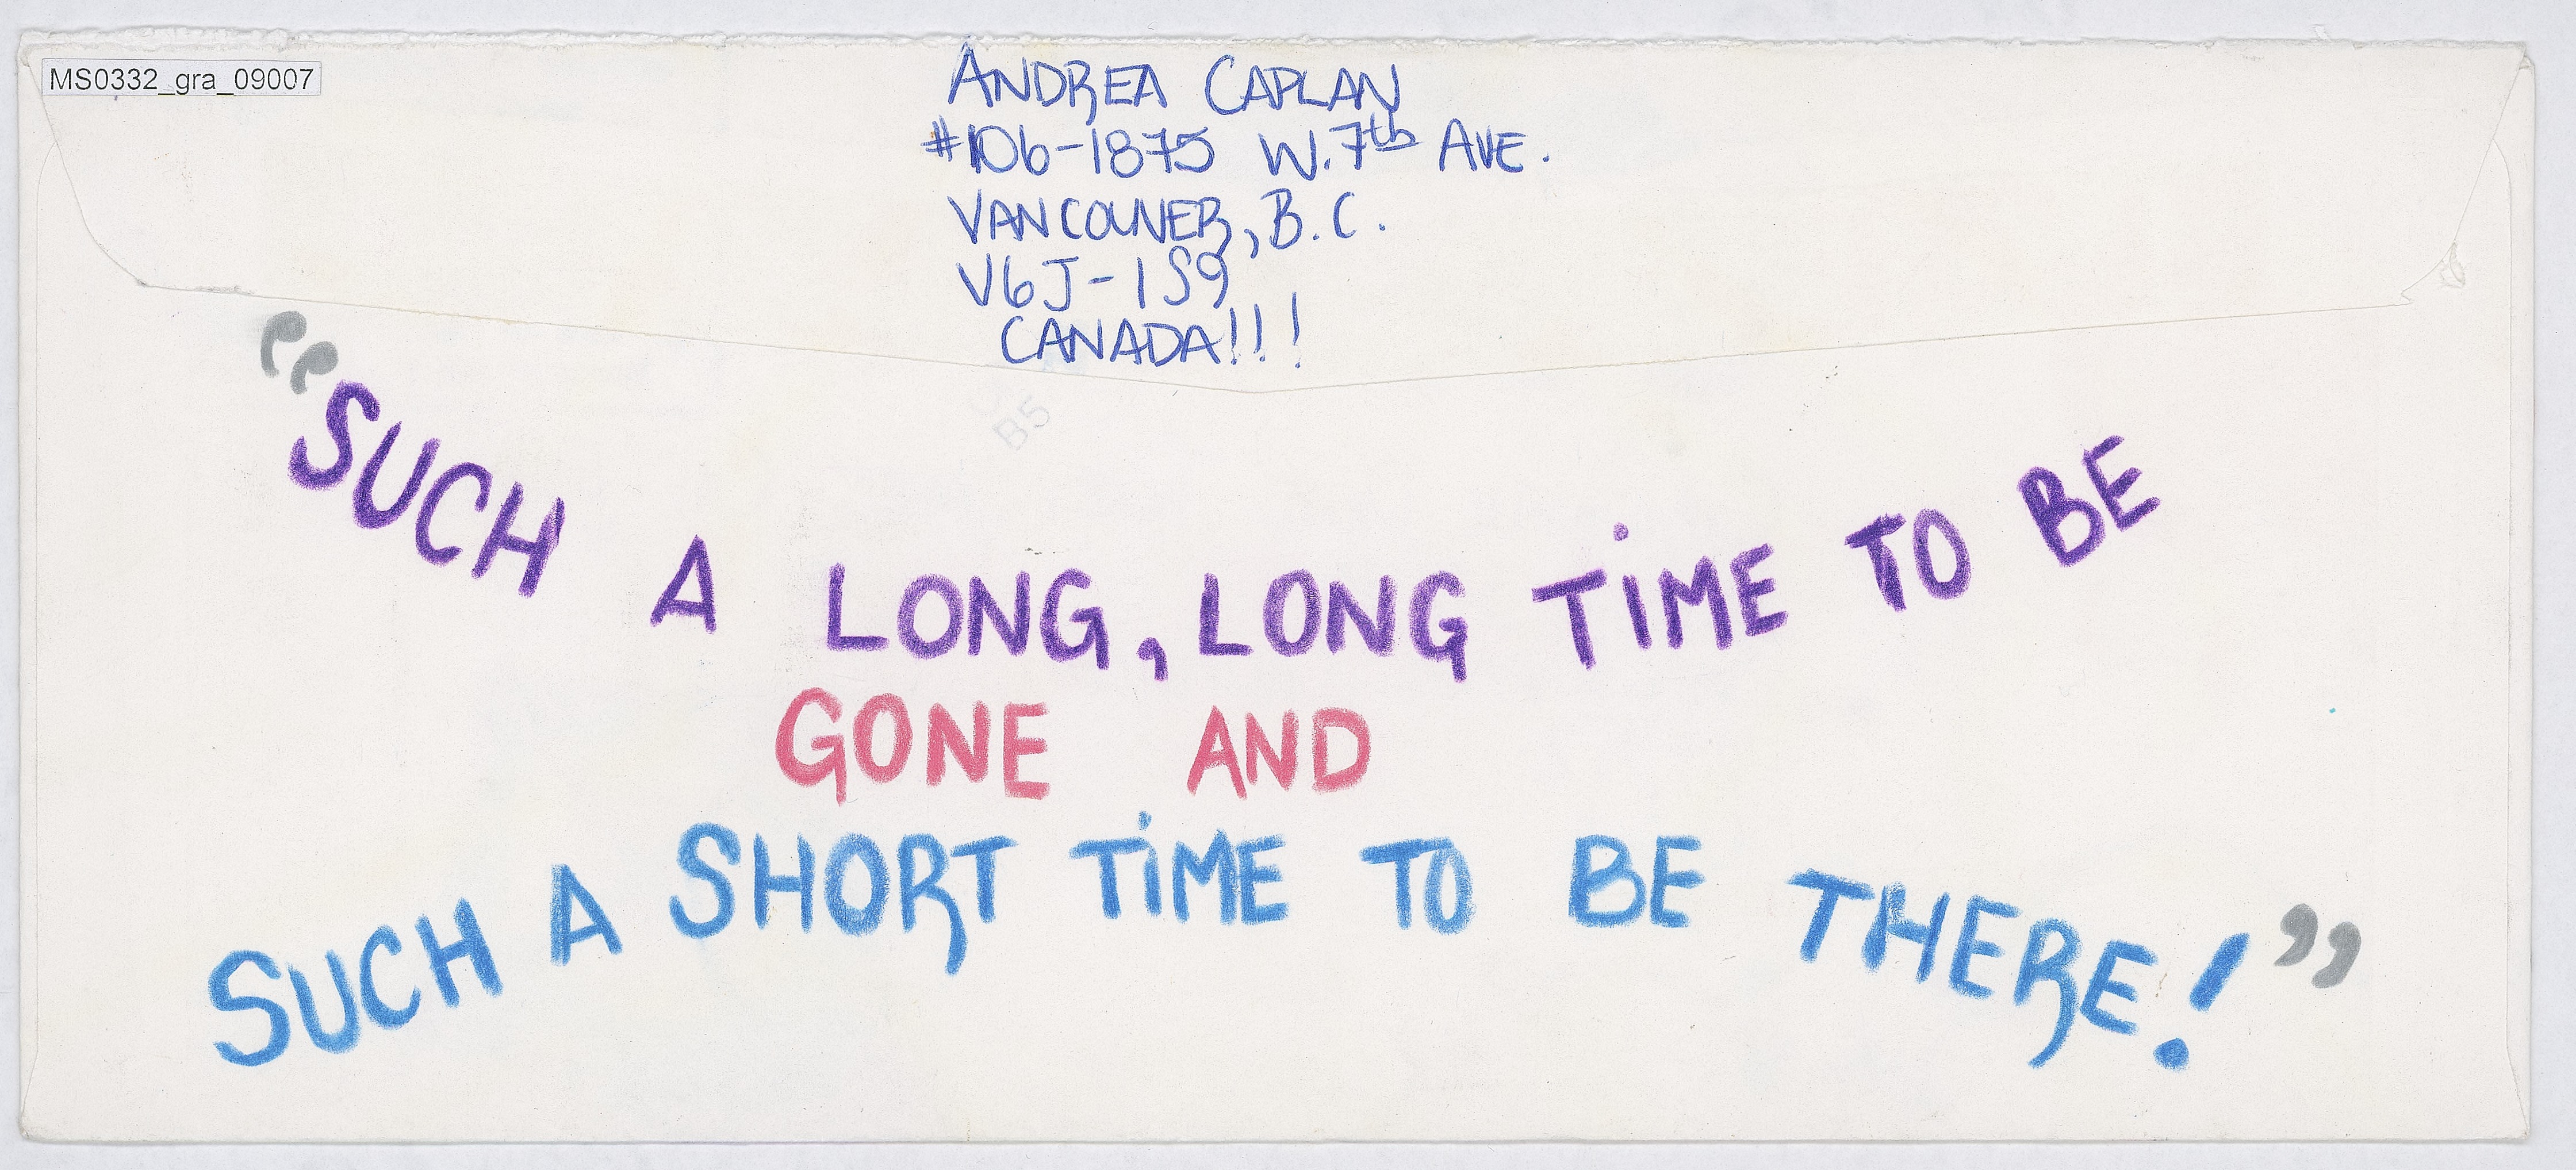 MS0332_gra_09007
ANDREA CAPLAN
#106-1875 W. 7th AVE.
VANCOUVER, B.C.
V6J-1S9
CANADA!!!
B5
“SUCH A LONG, LONG TIME TO BE
GONE AND
SUCH A SHORT TIME TO BE THERE!”